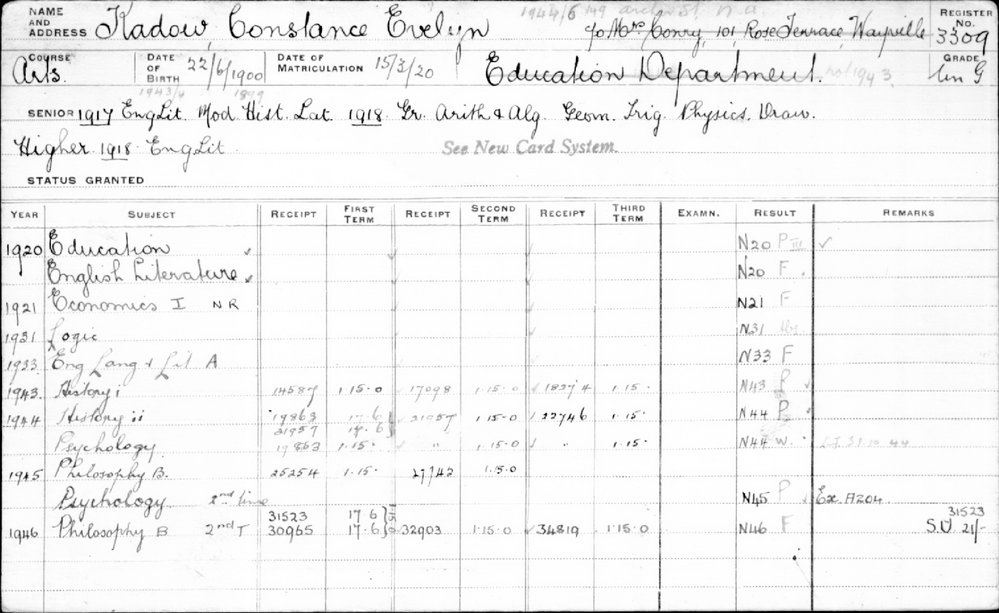 NAME AND ADDRESS Kadow, Constance Evelyn c/o Mrs Conry, 101, Rose Terrace, Wayville REGISTER NO. 3309
1944/6 149
COURSE Arts. DATE OF BIRTH 22/6/1900 DATE OF MATRICULATION 15/3/20 Education Department. 1943 GRADE Un G
1943/4 1899
SENIOR 1917 Eng Lit. Mod Hist. Lat. 1918. Gr. Arith & Alg. Geom. Trig. Physics. Draw.
Higher 1918 Eng Lit See New Card System.
STATUS GRANTED
YEAR SUBJECT RECEIPT FIRST TERM RECEIPT SECOND TERM RECEIPT THIRD TERM EXAMN. RESULT REMARKS
1920 Education ✓ N20 P III ✓
English Literature ✓ N20 F.
1921 Economics I NR N21 F
1931 Logic N31
1933 Eng Lang & Lit A N33 F
1943 History i 14587 1·15·0 17098 1·15·0 18374 1·15·
1944 History ii 19863 17·6 21057 1·15·0 22746 1·15· N44 P
21957 17·6
Psychology 19863 1·15· " 1·15·0 " 1·15· N44 W.
1945 Philosophy B. 25254 1·15· 27742 1·5·0
Psychology 2nd time N45 P Ex. A204.
31523 17 6 31523
1946 Philosophy B 2nd T 30965 17·6 32903 1·15·0 34819 1·15·0 N46 F S.U. 21/-